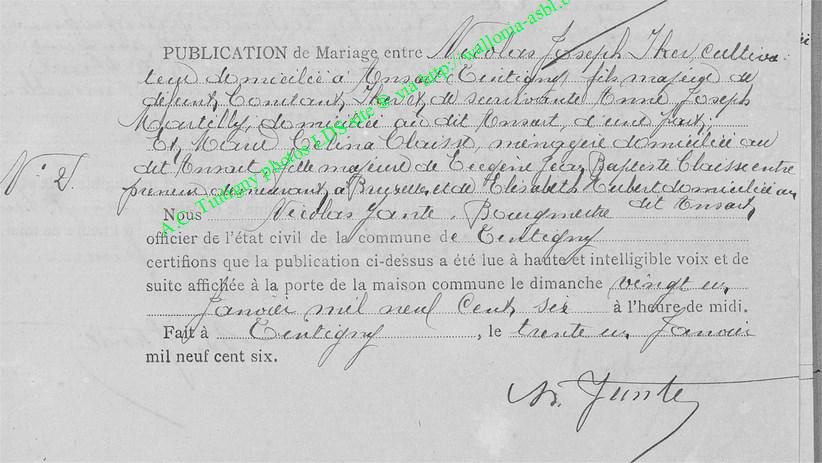 PUBLICATION de Mariage entre Nicolas Joseph Ther, cultiva-
teur domicilié à Ansart, Tintigny fils majeur de
défunt Constant Ther et de survivante Anne Joseph
Martilly, domiciliée au dit Ansart, d'une part;
Et, Marie Celina Claisse, ménagère domiciliée au
dit Ansart, fille majeure de Eugène Jean Baptiste Claisse entre
preneur demeurant à Bruxelles et de Elisabeth Hubert domiciliée au
dit Ansart,
N° 2
Nous Nicolas Jante, Bourgmestre
officier de l'état civil de la commune de Tintigny
certifions que la publication ci-dessus a été lue à haute et intelligible voix et de
suite affichée à la porte de la maison commune le dimanche vingt un
Janvier mil neuf cent six à l'heure de midi.
Fait à Tintigny, le trente un Janvier
mil neuf cent six.
N. Jante
A.C. Tintigny photos LDS site @ via http://wallonia-asbl.b